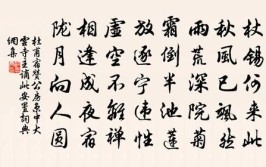 杖锡何来此
秋风已飒然
雨荒深院菊
霜倒半池莲
放逐宁违性
虚空不離禅
相逢成夜宿
陇月向人圆
杜甫宿贊公房京中大
雲寺主谪此安置詞典
網集